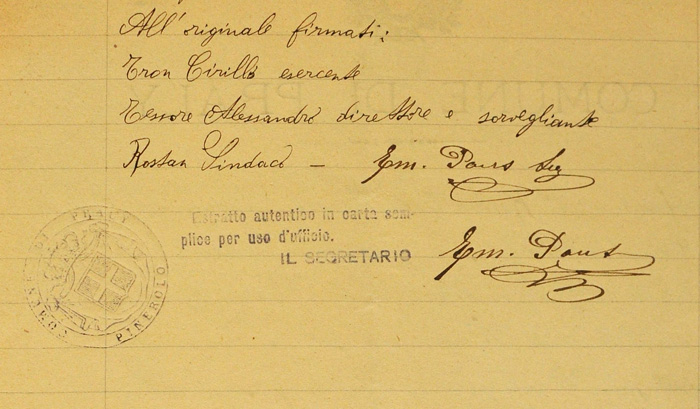 All'originale firmati:
Tron Cirillo esercente
Tessore Alessandro direttore e sorvegliante
Rostan Sindaco – Em. Pons Seg
Estratto autentico in carta sem-
plice per uso d'ufficio.
IL SEGRETARIO
Em. Pons
DI PRALI
PINEROLO